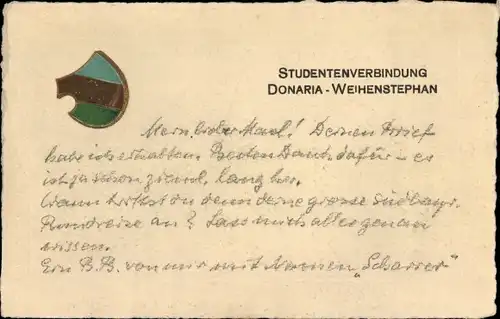 STUDENTENVERBINDUNG
DONARIA - WEIHENSTEPHAN
Mein lieber Maxl! Deinen Brief
habe ich erhalten. Besten Dank dafür - es
ist ja schon zieml. lang her.
Wann trittst du denn deine grosse südbayr.
Rundreise an? Lass mich alles genau
wissen.
Ein B.B. von mir mit Namen „Scharrer"